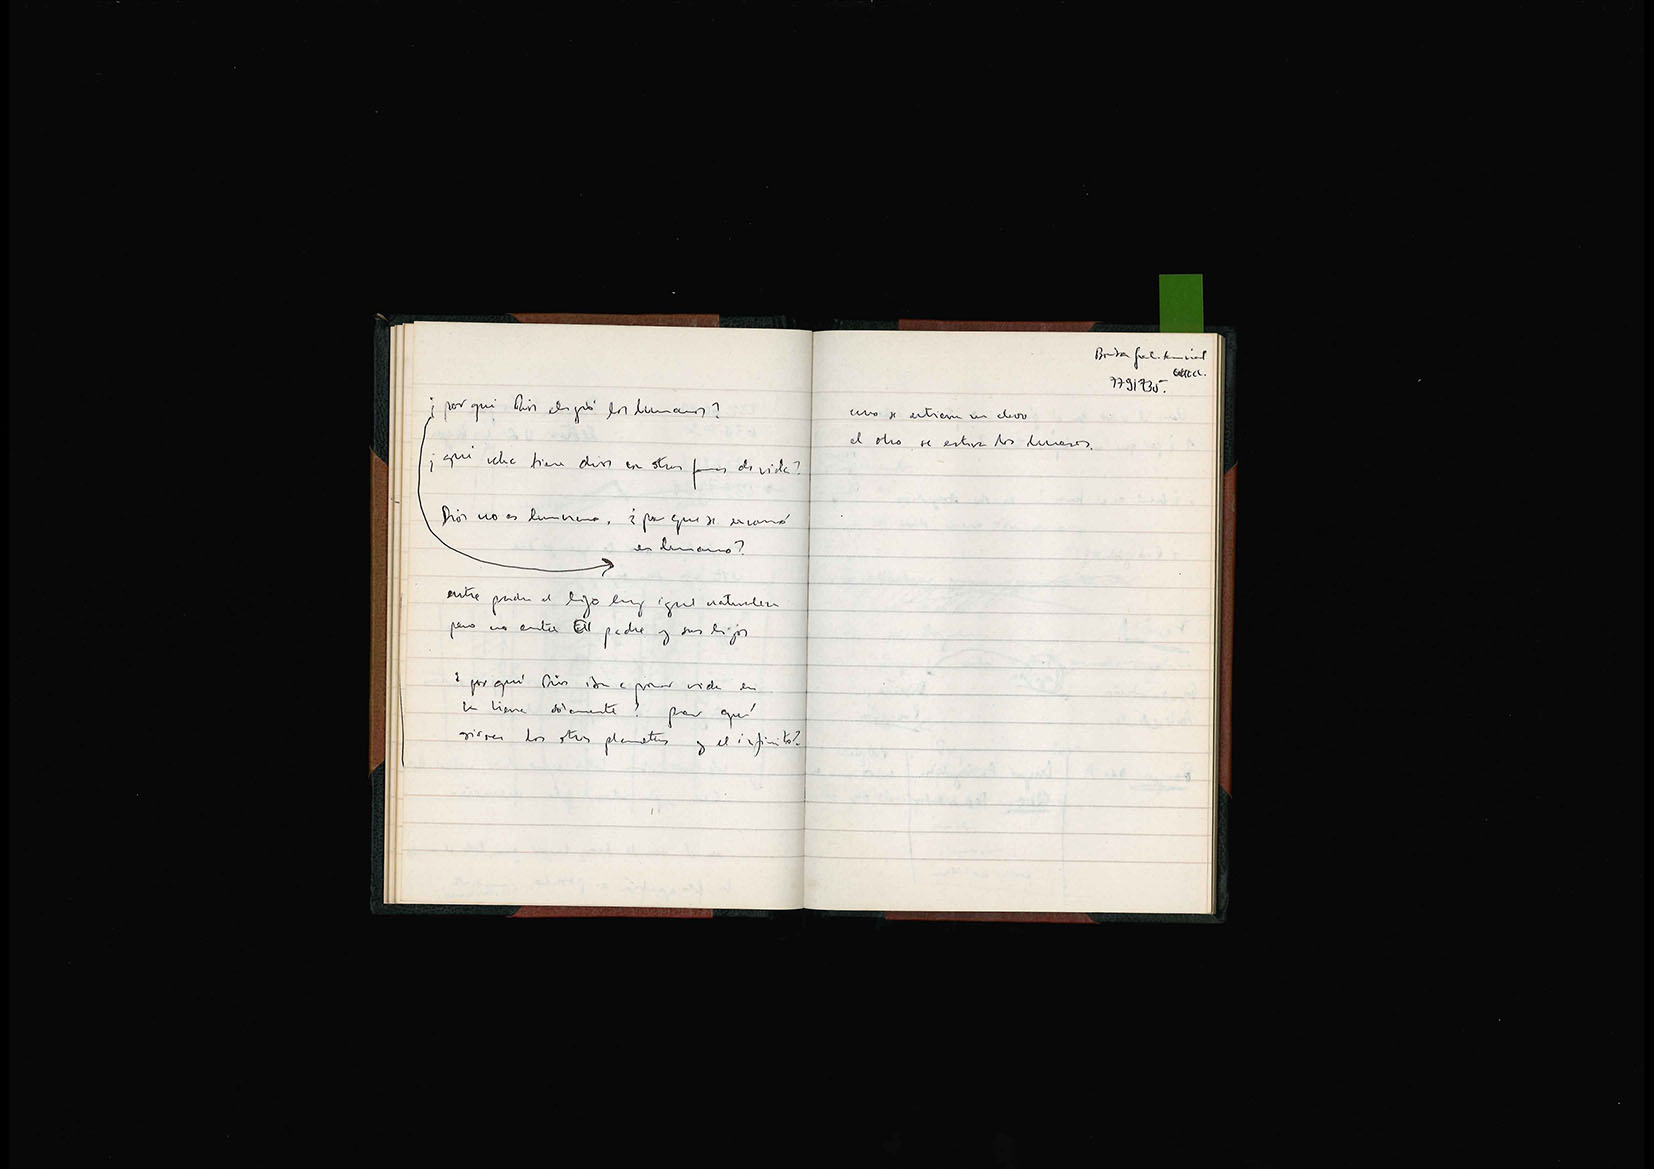 ¿por qué Dios eligió los humanos?
¿qué idea tiene dios en otras formas de vida?
Dios no es humano, ¿por qué se encarnó
en humano?
entre padre e hijo hay igual naturaleza
pero no entre El padre y sus hijos
¿por qué Dios iba a poner vida en
la tierra sólamente? por qué
giran los otros planetas y el infinito?
779735.
uno se entierra un clavo
el otro se estira los